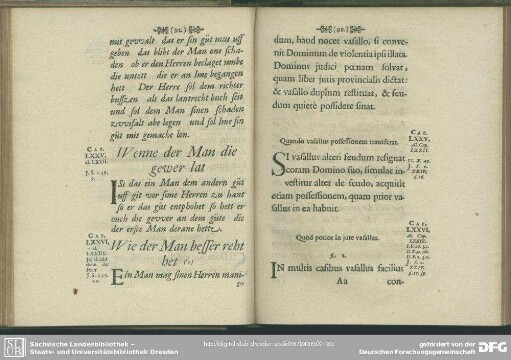 mit gewalt das er sin güt mus uff
geben das blibt der Man one scha-
den ob er den Herren beclaget umbe
die untott die er an Ime begangen
hett Der Herre sol dem richter
bussen als das lantrecht buch seit
und sol dem Man sinen schaden
zwifalt abe legen und sol Imr sin
güt mit gemache lon.
CAP.
LXXV.
Wenne der Man die
gewer lat
ISt das ein Man dem andern güt
uff git vor sime Herren zu hant
so er das güt entpfohet so hett er
ouch die gewer an dem güte die
der erste Man derane hette
CAP.
LXXVI.
Wie der Man besser reht
het
EIn Man mag sinen Herren mani-
dum, haud nocet vasallo, si conve-
nit Dominum de violentia ipsi illata.
Dominus judici pœnam solvat,
quam liber juris provincialis dictat:
& vasallo duplum restituat, & feu-
dum quietè possidere sinat.
Quando vasallus possessionem transferat.
CAP.
LXXV.
SI vasallus alteri feudum resignat
coram Domino suo, simulac in-
vestitur alter de feudo, acquisit
etiam possessionem, quam prior va-
sallus in ea habuit.
CAP.
LXXVI.
Quod potior in jure vasallus.
§. 1.
IN multis casibus vasallus facilius
Aa
con-
Sächsische Landesbibliothek –
Staats- und Universitätsbibliothek Dresden
gefördert von der
Deutschen Forschungsgemeinschaft
DFG